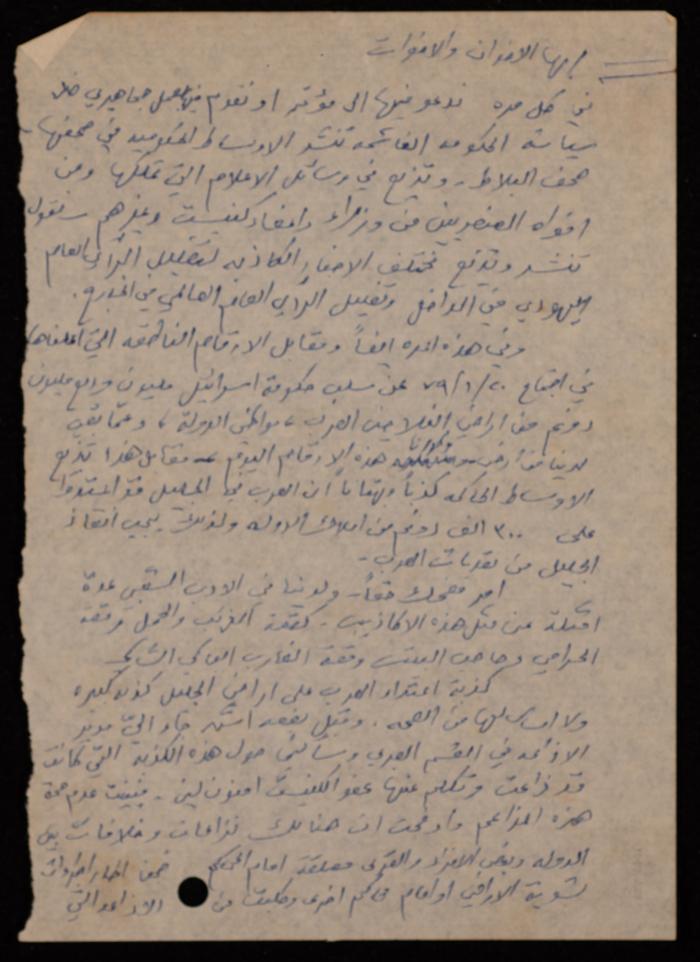 ايها الاخوان والاخوات
في كل مره ندعو فيها الى مؤتمر او نقوم فيها بعمل جماهيري ضد
سياسة الحكومه الغاشمه تنشر الاوساط الحكوميه في صحفها
صحف البلاط - وتذيع في وسائل الاعلام التي تملكها ومن
افواه العنصريين من وزراء واعضاء كنيست وغيرهم - نقول
تنشر وتذيع مختلف الاخبار الكاذبه لتضليل الرأي العام
اليهودي في الداخل وتضليل الرأي العام العالمي في الخارج.
وفي هذه المره ايضاً ومقابل الارقام الناطقه التي اعلناها
في اجتماع ٧٩/١/٢٠ عن سلب حكومة اسرائيل مليون وربع مليون
دونم من اراضي الفلاحين العرب، مواطني الدولة، وعما تبقى
لدينا من أرض هذه الارقام اليوم - مقابل هذا تذيع
الاوساط الحاكمه كذباً وبهتاناً ان العرب في الجليل قد استولوا
على ٣٠٠ الف دونم من املاك الدوله ولذلك يجب انقاذ
الجليل من تعديات العرب -
امر مضحك حقاً - ولدينا في الادب الشعبي عدة
امثلة عن مثل هذه الاكاذيب - كقصة الذئب والحمل وقصة
الحرامي وصاحب البيت وقصة الضارب الباكي الشاكي
كذبة اعتداء العرب على اراضي الجليل كذبه كبيره
ولا اساس لها من الصحه. وقبل بضعة اشهر جاء اليّ مدير
الاذاعه في القسم العربي وسألني حول هذه الكذبه التي كانت
قد ذاعت وتكلم عنها عضو الكنيست امنون لين - فبينت عدم صحة
هذه المزاعم واوضحت ان هنالك نزاعات وخلافات بين
الدوله وبعض الافراد والقرى معلقة امام المحاكم ضمن اطار
تسوية الاراضي او امام محاكم اخرى وطلبت من الاذاعه التي